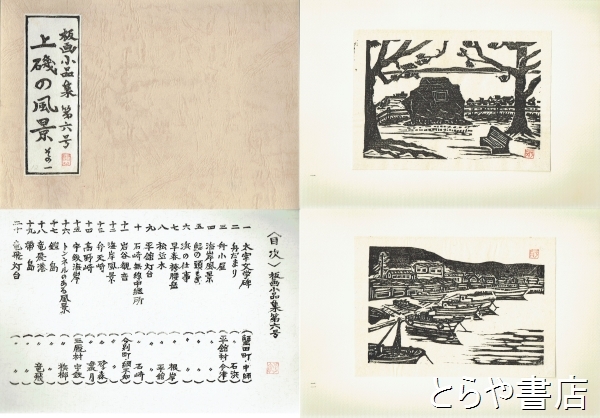 板画小品集 第六号
上磯の風景 その一
〈目次〉 板画小品集第六号
一 太宰文学碑 (蟹田町 中師)
二 舟だまり (〃 石浜)
三 舟小屋 (平舘村 今津)
四 海岸風景
五 鮭の頭
六 浜の仕事
七 早春
八 松並木
九 平舘灯台
十 石崎無線中継所 (〃 石崎)
十一 岩谷観音
十二 海岸風景
十三 弁天崎
十四 高野崎
十五 宇鉄海岸 (三厩村 宇鉄)
十六 トンネルのある風景
十七 鎧島
十八 竜飛港 (〃 竜飛)
十九 帯島
二十 竜飛灯台
とらや書店